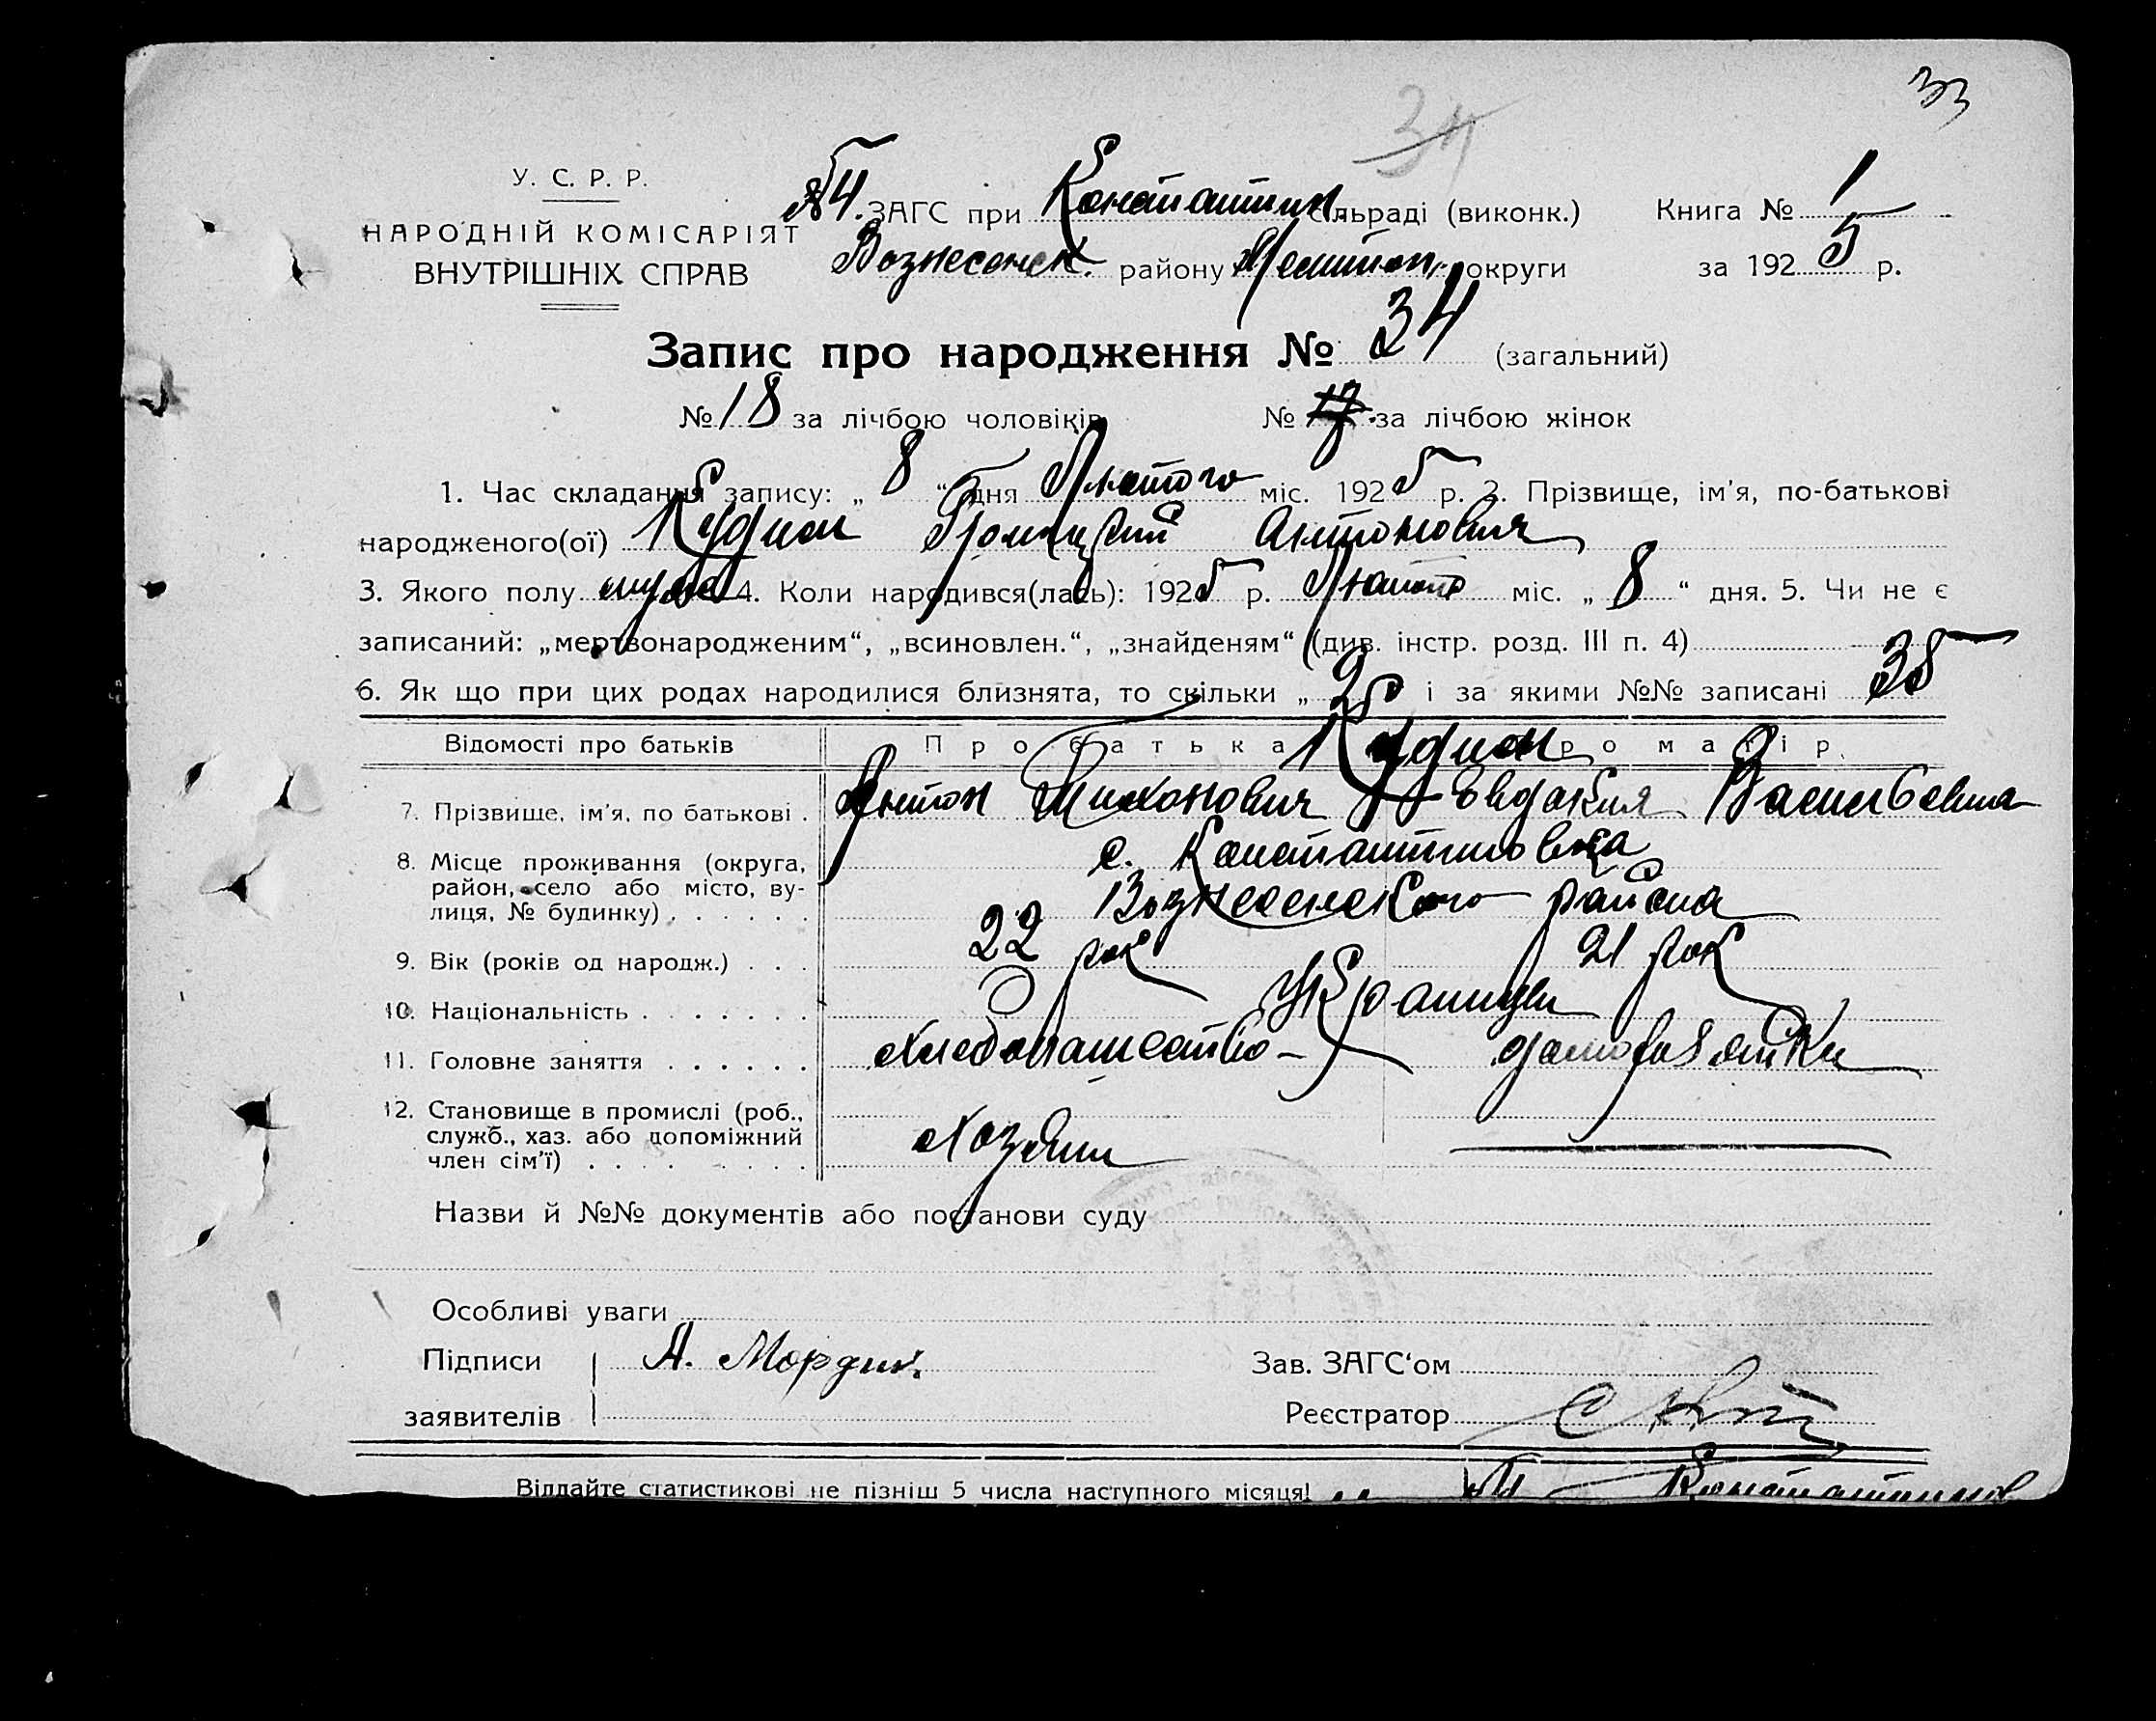 33
34
У. С. Р. Р.
НАРОДНІЙ КОМІСАРІЯТ
ВНУТРІШНІХ СПРАВ
ЗАГС при Константин. сільраді (виконк.) Книга № 1
Вознесенск. району Мелитоп. округи за 1925 р.
Запис про народження № 34 (загальний)
№ 18 за лічбою чоловіків № за лічбою жінок
1. Час складання запису: „ 8 “ дня Лютого міс. 1925 р. 2. Прізвище, ім'я, по-батькові
народженого(ої) Кудин Антонович
3. Якого полу муж. 4. Коли народився(лась): 1925 р. Лютого міс. „ 8 “ дня. 5. Чи не є
записаний: „мертвонародженим“, „всиновлен.“, „знайденям“ (див. інстр. розд. III п. 4)
6. Як що при цих родах народилися близнята, то скільки „ 2 і за якими №№ записані 35
Відомості про батьків Про батька Про матір
Кудин
7. Прізвище, ім'я, по батькові . Антон Тихонович Евдокия Васильевна
8. Місце проживання (округа, с. Константиновка
район, село або місто, ву-
лиця, № будинку) . . . . . . Вознесенского района
9. Вік (років од народж.) . . . 22 рок 21 рок
10. Національність . . . . . . . Украинцы
11. Головне заняття . . . . . . хлебопашество
12. Становище в промислі (роб.,
служб., хаз. або допоміжний
член сім'ї) . . . . . . . . . хозяин
Назви й №№ документів або постанови суду
Особливі уваги
Підписи А. Мордик. Зав. ЗАГС‘ом
заявителів Реєстратор
Віддайте статистикові не пізніш 5 числа наступного місяця! Константинов